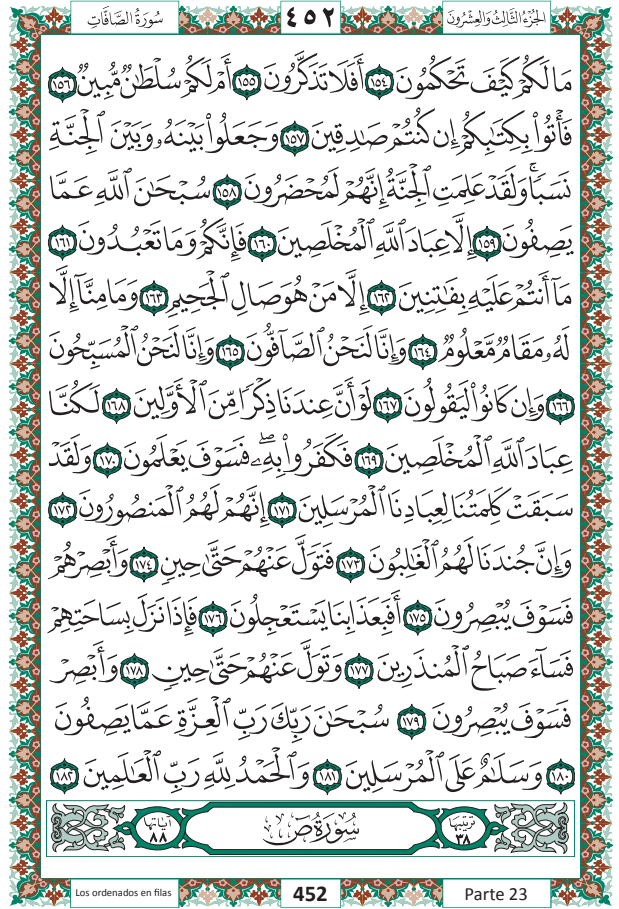 سُورَةُ الصَّافَّاتِ ٤٥٢ الجُزْءُ الثَّالِثُ وَالعِشْرُونَ
مَا لَكُمْ كَيْفَ تَحْكُمُونَ ١٥٤ أَفَلَا تَذَكَّرُونَ ١٥٥ أَمْ لَكُمْ سُلْطَٰنٌ مُّبِينٌ ١٥٦
فَأْتُوا۟ بِكِتَٰبِكُمْ إِن كُنتُمْ صَٰدِقِينَ ١٥٧ وَجَعَلُوا۟ بَيْنَهُۥ وَبَيْنَ ٱلْجِنَّةِ
نَسَبًا ۚ وَلَقَدْ عَلِمَتِ ٱلْجِنَّةُ إِنَّهُمْ لَمُحْضَرُونَ ١٥٨ سُبْحَٰنَ ٱللَّهِ عَمَّا
يَصِفُونَ ١٥٩ إِلَّا عِبَادَ ٱللَّهِ ٱلْمُخْلَصِينَ ١٦٠ فَإِنَّكُمْ وَمَا تَعْبُدُونَ ١٦١
مَآ أَنتُمْ عَلَيْهِ بِفَٰتِنِينَ ١٦٢ إِلَّا مَنْ هُوَ صَالِ ٱلْجَحِيمِ ١٦٣ وَمَا مِنَّآ إِلَّا
لَهُۥ مَقَامٌ مَّعْلُومٌ ١٦٤ وَإِنَّا لَنَحْنُ ٱلصَّآفُّونَ ١٦٥ وَإِنَّا لَنَحْنُ ٱلْمُسَبِّحُونَ
١٦٦ وَإِن كَانُوا۟ لَيَقُولُونَ ١٦٧ لَوْ أَنَّ عِندَنَا ذِكْرًا مِّنَ ٱلْأَوَّلِينَ ١٦٨ لَكُنَّا
عِبَادَ ٱللَّهِ ٱلْمُخْلَصِينَ ١٦٩ فَكَفَرُوا۟ بِهِۦ ۖ فَسَوْفَ يَعْلَمُونَ ١٧٠ وَلَقَدْ
سَبَقَتْ كَلِمَتُنَا لِعِبَادِنَا ٱلْمُرْسَلِينَ ١٧١ إِنَّهُمْ لَهُمُ ٱلْمَنصُورُونَ ١٧٢
وَإِنَّ جُندَنَا لَهُمُ ٱلْغَٰلِبُونَ ١٧٣ فَتَوَلَّ عَنْهُمْ حَتَّىٰ حِينٍ ١٧٤ وَأَبْصِرْهُمْ
فَسَوْفَ يُبْصِرُونَ ١٧٥ أَفَبِعَذَابِنَا يَسْتَعْجِلُونَ ١٧٦ فَإِذَا نَزَلَ بِسَاحَتِهِمْ
فَسَآءَ صَبَاحُ ٱلْمُنذَرِينَ ١٧٧ وَتَوَلَّ عَنْهُمْ حَتَّىٰ حِينٍ ١٧٨ وَأَبْصِرْ
فَسَوْفَ يُبْصِرُونَ ١٧٩ سُبْحَٰنَ رَبِّكَ رَبِّ ٱلْعِزَّةِ عَمَّا يَصِفُونَ
١٨٠ وَسَلَٰمٌ عَلَى ٱلْمُرْسَلِينَ ١٨١ وَٱلْحَمْدُ لِلَّهِ رَبِّ ٱلْعَٰلَمِينَ ١٨٢
ترتيبها ٣٨ سُورَةُ صٓ آياتها ٨٨
Los ordenados en filas 452 Parte 23